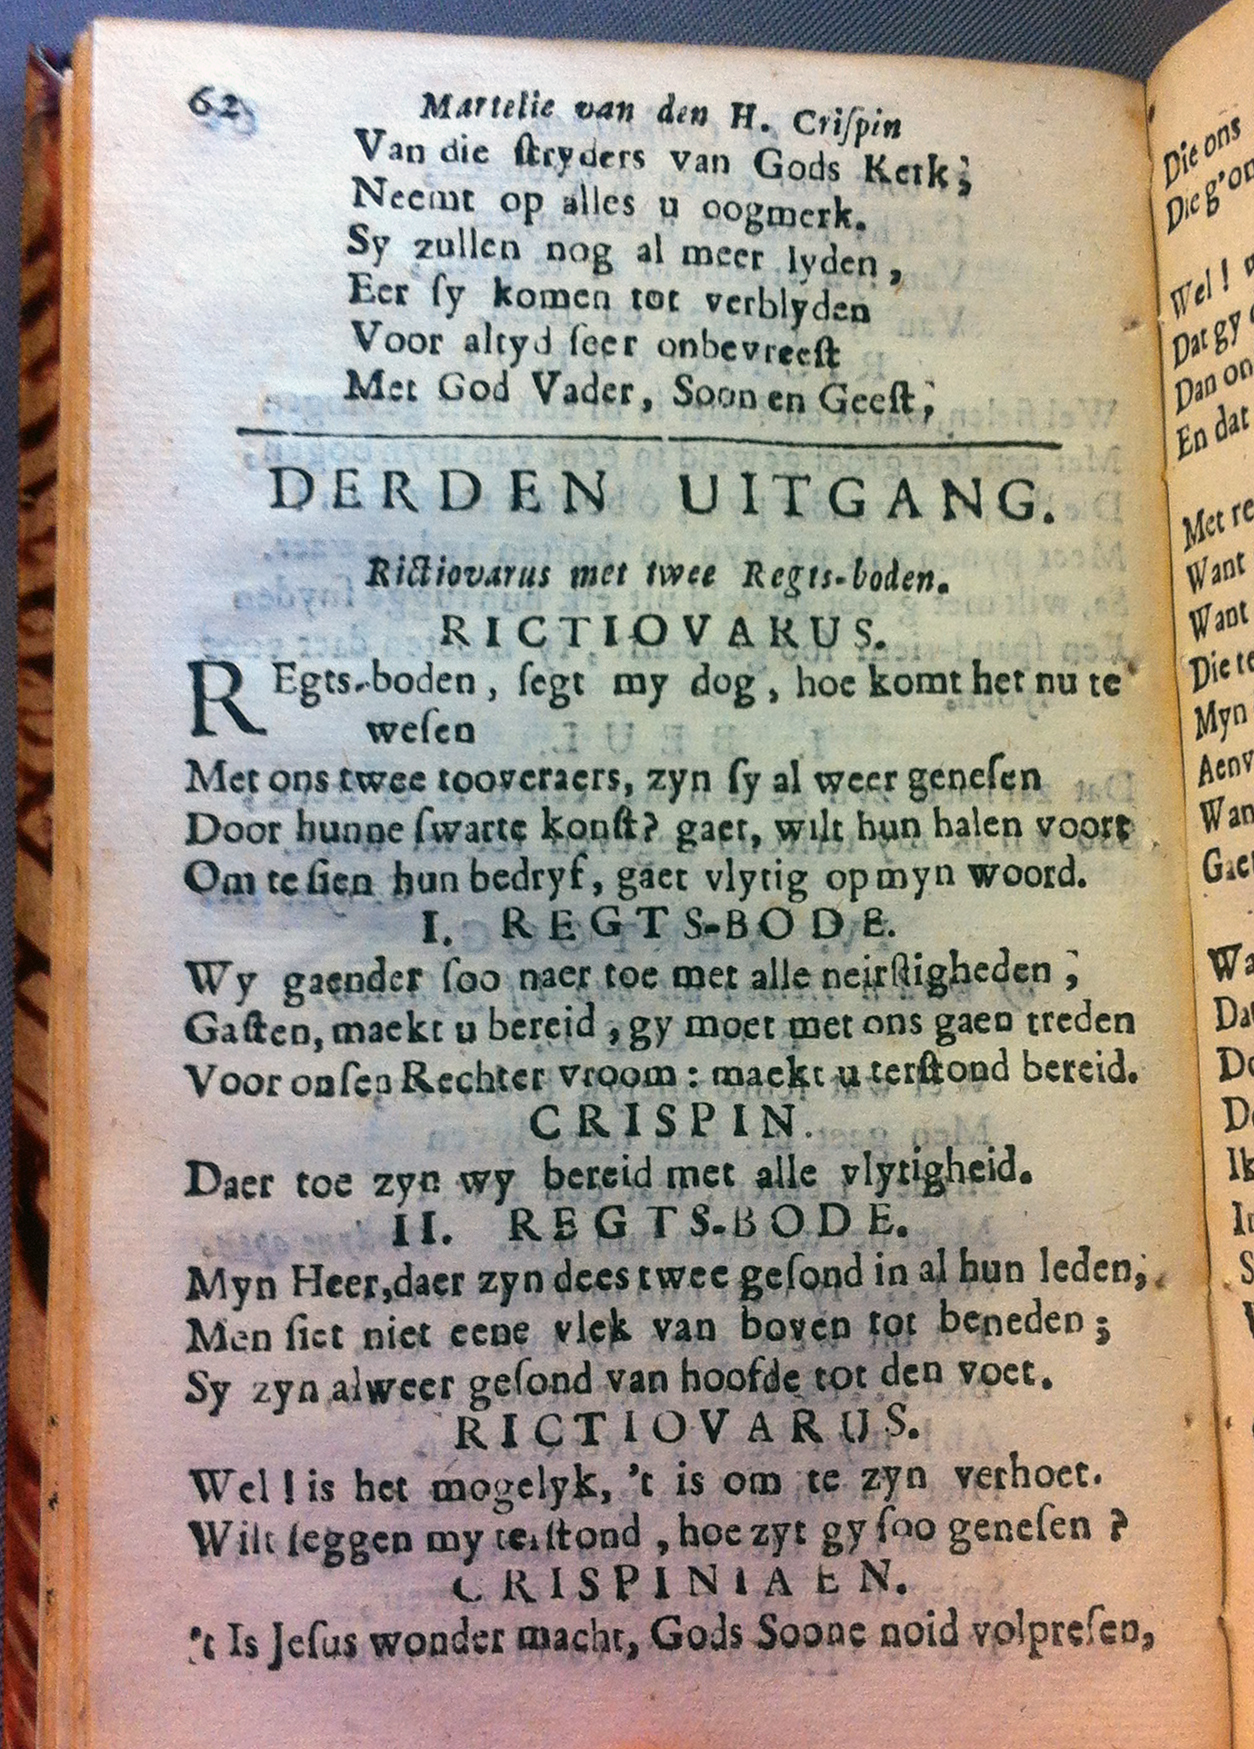 62
Martelie van den H. Criſpin
Van die ſtryders van Gods Kerk;
Neemt op alles u oogmerk.
Sy zullen nog al meer lyden,
Eer ſy komen tot verblyden
Voor altyd ſeer onbevreeſt
Met God Vader, Soon en Geeſt;
DERDEN UITGANG.
Rictiovarus met twee Regts-boden.
RICTIOVARUS.
REgts-boden, ſegt my dog, hoe komt het nu te
weſen
Met ons twee tooveraers, zyn ſy al weer geneſen
Door hunne ſwarte konſt? gaet, wilt hun halen voort
Om te ſien hun bedryf, gaet vlytig op myn woord.
I. REGTS-BODE.
Wy gaender ſoo naer toe met alle neirſtigheden;
Gaſten, maekt u bereid, gy moet met ons gaen treden
Voor onſen Rechter vroom: maekt u terſtond bereid.
CRISPIN.
Daer toe zyn wy bereid met alle vlytigheid.
II. REGTS-BODE.
Myn Heer, daer zyn dees twee geſond in al hun leden,
Men ſiet niet eene vlek van boven tot beneden;
Sy zyn alweer geſond van hoofde tot den voet.
RICTIOVARUS.
Wel! is het mogelyk, 't is om te zyn verhoet.
Wilt ſeggen my terſtond, hoe zyt gy ſoo geneſen?
CRISPINIAEN.
't Is Jeſus wonder macht, Gods Soone noid volpreſen,
Die ons
Die g'on
Wel!
Dat gy
Dan on
En dat
Met re
Want
Want
Die te
Myn
Aenv
Wan
Gaet